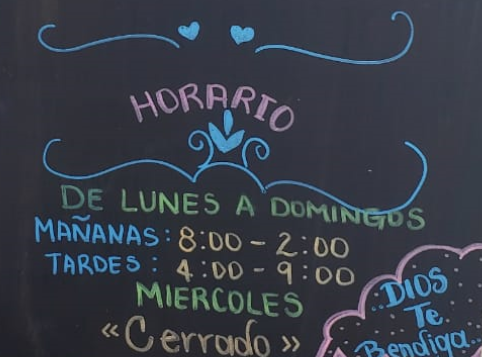 HORARIO
DE LUNES A DOMINGOS
MAÑANAS: 8:00 - 2:00
TARDES: 4:00 - 9:00
MIERCOLES
«Cerrado»
DIOS
Te
Bendiga..